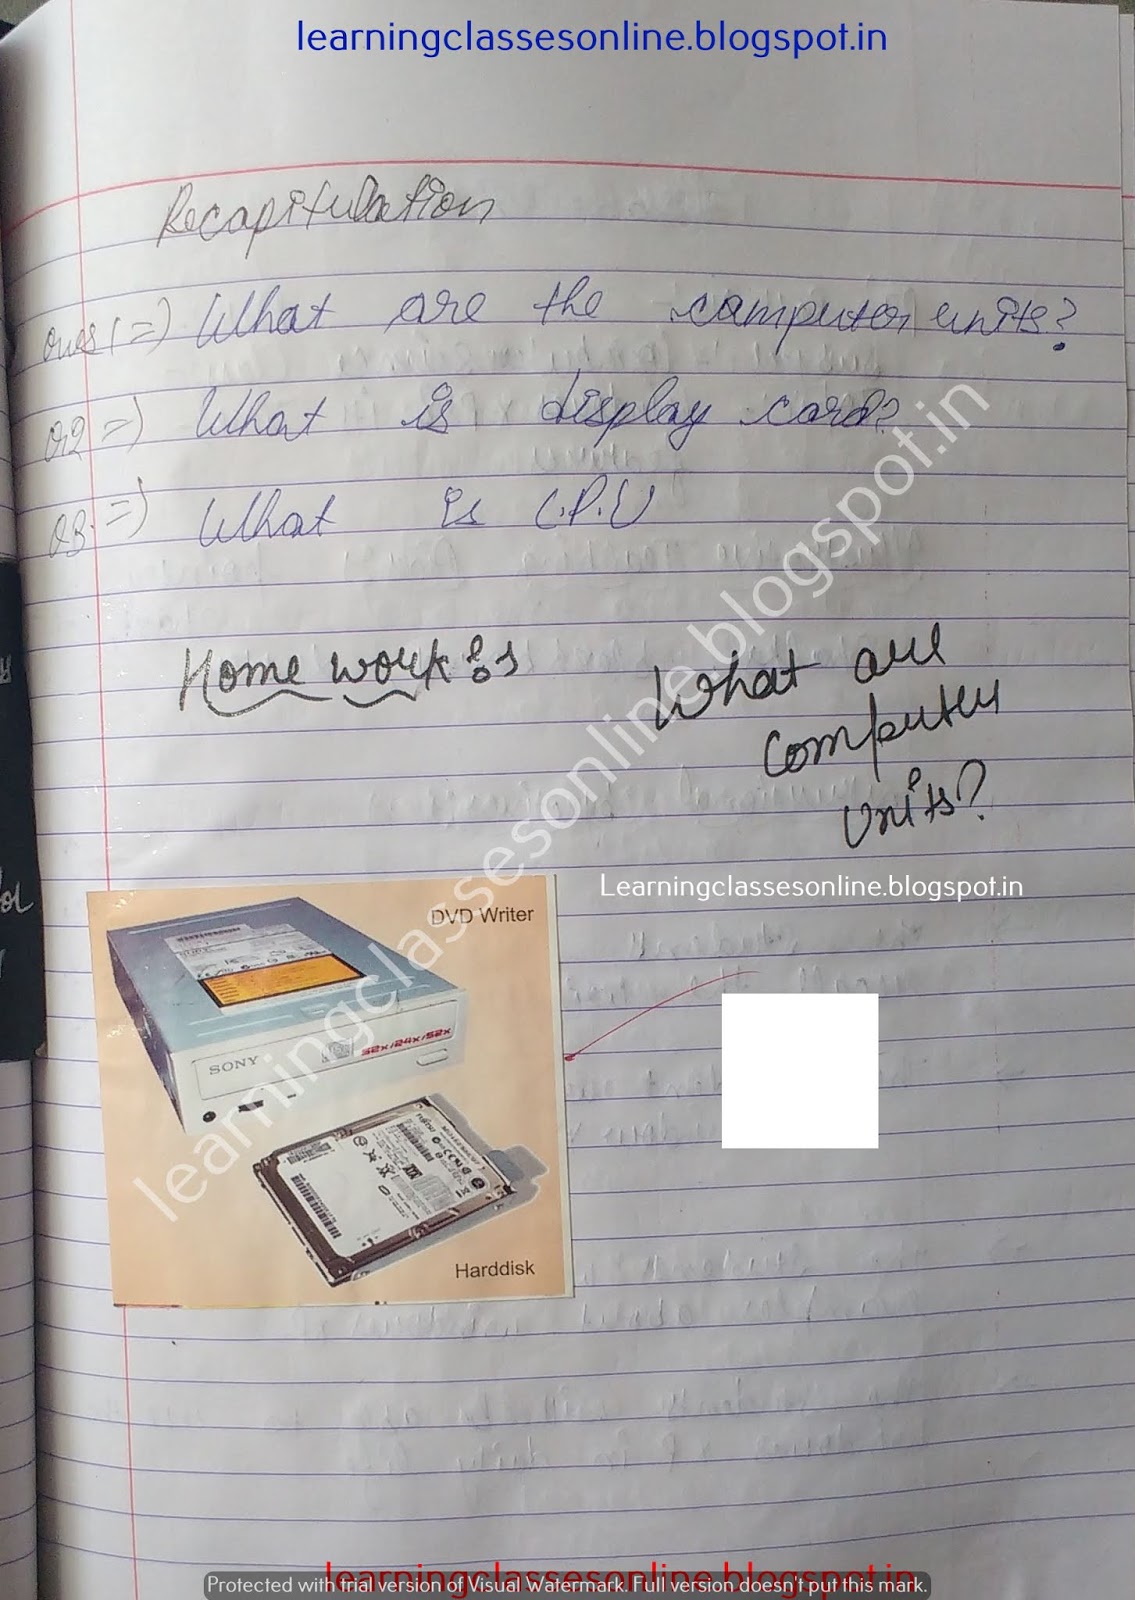 learningclassesonline.blogspot.in
Recapitulation
Ques 1 => What are the computer units?
Q2 => What is display card?
Q3. => What is C.P.U
Home work :-
What are
computer
units?
Learningclassesonline.blogspot.in
DVD Writer
SONY
52x/24x/52x
FUJITSU
Harddisk
learningclassesonline.blogspot.in
learningclassesonline.blogspot.in
Protected with trial version of Visual Watermark. Full version doesn't put this mark.